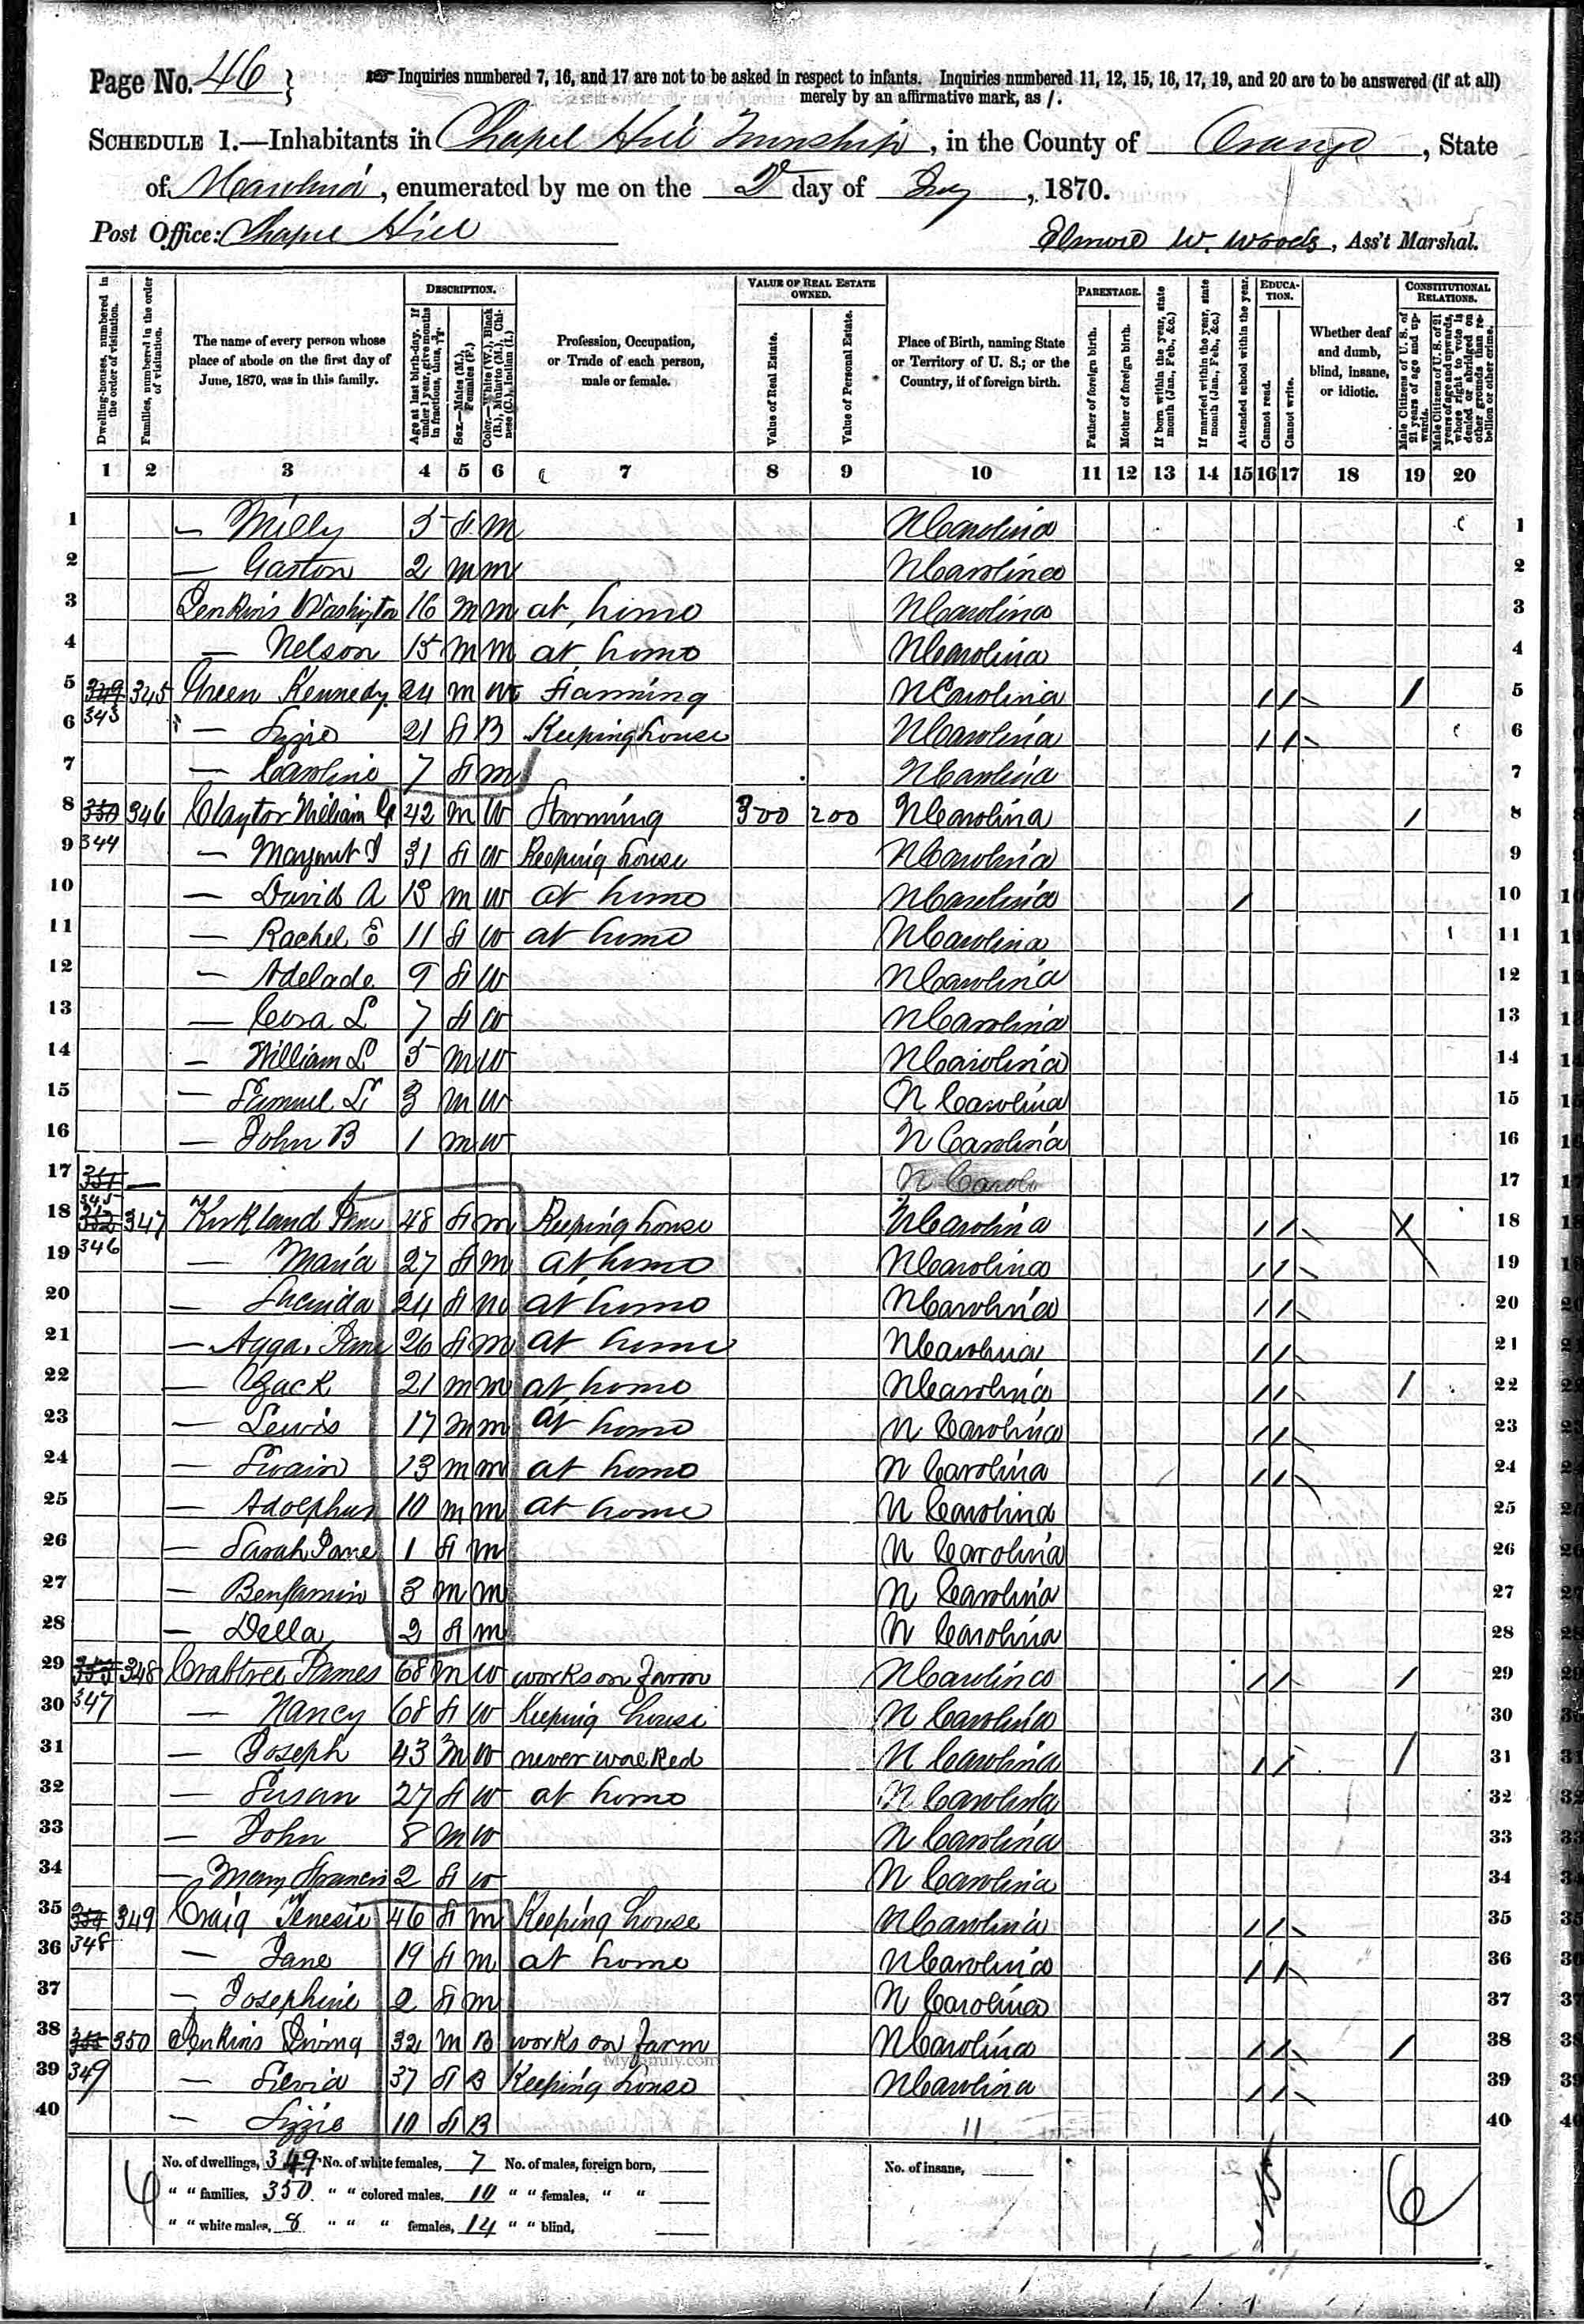 Page No. 46 } Inquiries numbered 7, 16, and 17 are not to be asked in respect to infants. Inquiries numbered 11, 12, 15, 16, 17, 19, and 20 are to be answered (if at all)
merely by an affirmative mark, as /.
SCHEDULE 1.—Inhabitants in Chapel Hill Township, in the County of Orange, State
of N Carolina, enumerated by me on the 2d day of July, 1870.
Post Office: Chapel Hill
Elmore W. Woods, Ass't Marshal.
Dwelling-houses, numbered in the order of visitation.
Families, numbered in the order of visitation.
The name of every person whose place of abode on the first day of June, 1870, was in this family.
DESCRIPTION.
Age at last birth-day. If under 1 year, give months in fractions, thus, 3/12.
Sex.—Males (M.), Females (F.)
Color.—White (W.), Black (B.), Mulatto (M.), Chinese (C.), Indian (I.)
Profession, Occupation, or Trade of each person, male or female.
VALUE OF REAL ESTATE OWNED.
Value of Real Estate.
Value of Personal Estate.
Place of Birth, naming State or Territory of U. S.; or the Country, if of foreign birth.
PARENTAGE.
Father of foreign birth.
Mother of foreign birth.
If born within the year, state month (Jan., Feb., &c.)
If married within the year, state month (Jan., Feb., &c.)
Attended school within the year.
EDUCATION.
Cannot read.
Cannot write.
Whether deaf and dumb, blind, insane, or idiotic.
CONSTITUTIONAL RELATIONS.
Male Citizens of U. S. of 21 years of age and upwards.
Male Citizens of U. S. of 21 years of age and upwards, whose right to vote is denied or abridged on other grounds than rebellion or other crime.
1 2 3 4 5 6 7 8 9 10 11 12 13 14 15 16 17 18 19 20
1 — Milly 5 f M N Carolina 1
2 — Gaston 2 m m N Carolina 2
3 Jenkins Washington 16 m m at home N Carolina 3
4 — Nelson 15 m m at home N Carolina 4
5 349 345 Green Kennedy 24 m W Farming N Carolina / / / 5
6 343 — Lizzie 21 f B Keeping house N Carolina / / 6
7 — Caroline 7 f m N Carolina 7
8 350 346 Claytor William G 42 m W Farming 300 200 N Carolina / 8
9 344 — Margaret J 31 f W Keeping house N Carolina 9
10 — David A 13 m W at home N Carolina / 10
11 — Rachel E 11 f W at home N Carolina 11
12 — Adelade 9 f W N Carolina 12
13 — Cora L 7 f W N Carolina 13
14 — William L 5 m W N Carolina 14
15 — Samuel L 3 m W N Carolina 15
16 — John B 1 m W N Carolina 16
17 351 — N Carol 17
345
18 352 347 Kirkland Jane 48 f m Keeping house N Carolina / / X 18
19 346 — Maria 27 f m at home N Carolina / / 19
20 — Lucinda 24 f m at home N Carolina / / 20
21 — Agga Jane 26 f m at home N Carolina / / 21
22 — Zack 21 m m at home N Carolina / / / 22
23 — Lewis 17 m m at home N Carolina / / 23
24 — Swain 13 m m at home N Carolina / / 24
25 — Adolphus 10 m m at home N Carolina 25
26 — Sarah Jane 1 f m N Carolina 26
27 — Benjamin 3 m m N Carolina 27
28 — Della 2 f m N Carolina 28
29 353 348 Crabtree James 68 m W works on farm N Carolina / / / 29
30 347 — Nancy 68 f W Keeping house N Carolina 30
31 — Joseph 43 m W never walked N Carolina / / / 31
32 — Susan 27 f W at home N Carolina 32
33 — John 8 m W N Carolina 33
34 — Mary Francis 2 f W N Carolina 34
35 354 349 Craig Tenesie 46 f m Keeping house N Carolina / / 35
36 348 — Jane 19 f m at home N Carolina / / 36
37 — Josephine 2 f m N Carolina 37
38 355 350 Jenkins Irving 32 m B works on farm N Carolina / / / 38
39 349 — Silvia 37 f B Keeping house N Carolina / / 39
40 — Lizzie 10 f B " 40
MyFamily.com
No. of dwellings, 349 No. of white females, 7 No. of males, foreign born, No. of insane,
" " families, 350 " " colored males, 10 " " females, " "
" " white males, 8 " " " females, 14 " " blind,
6 15 6